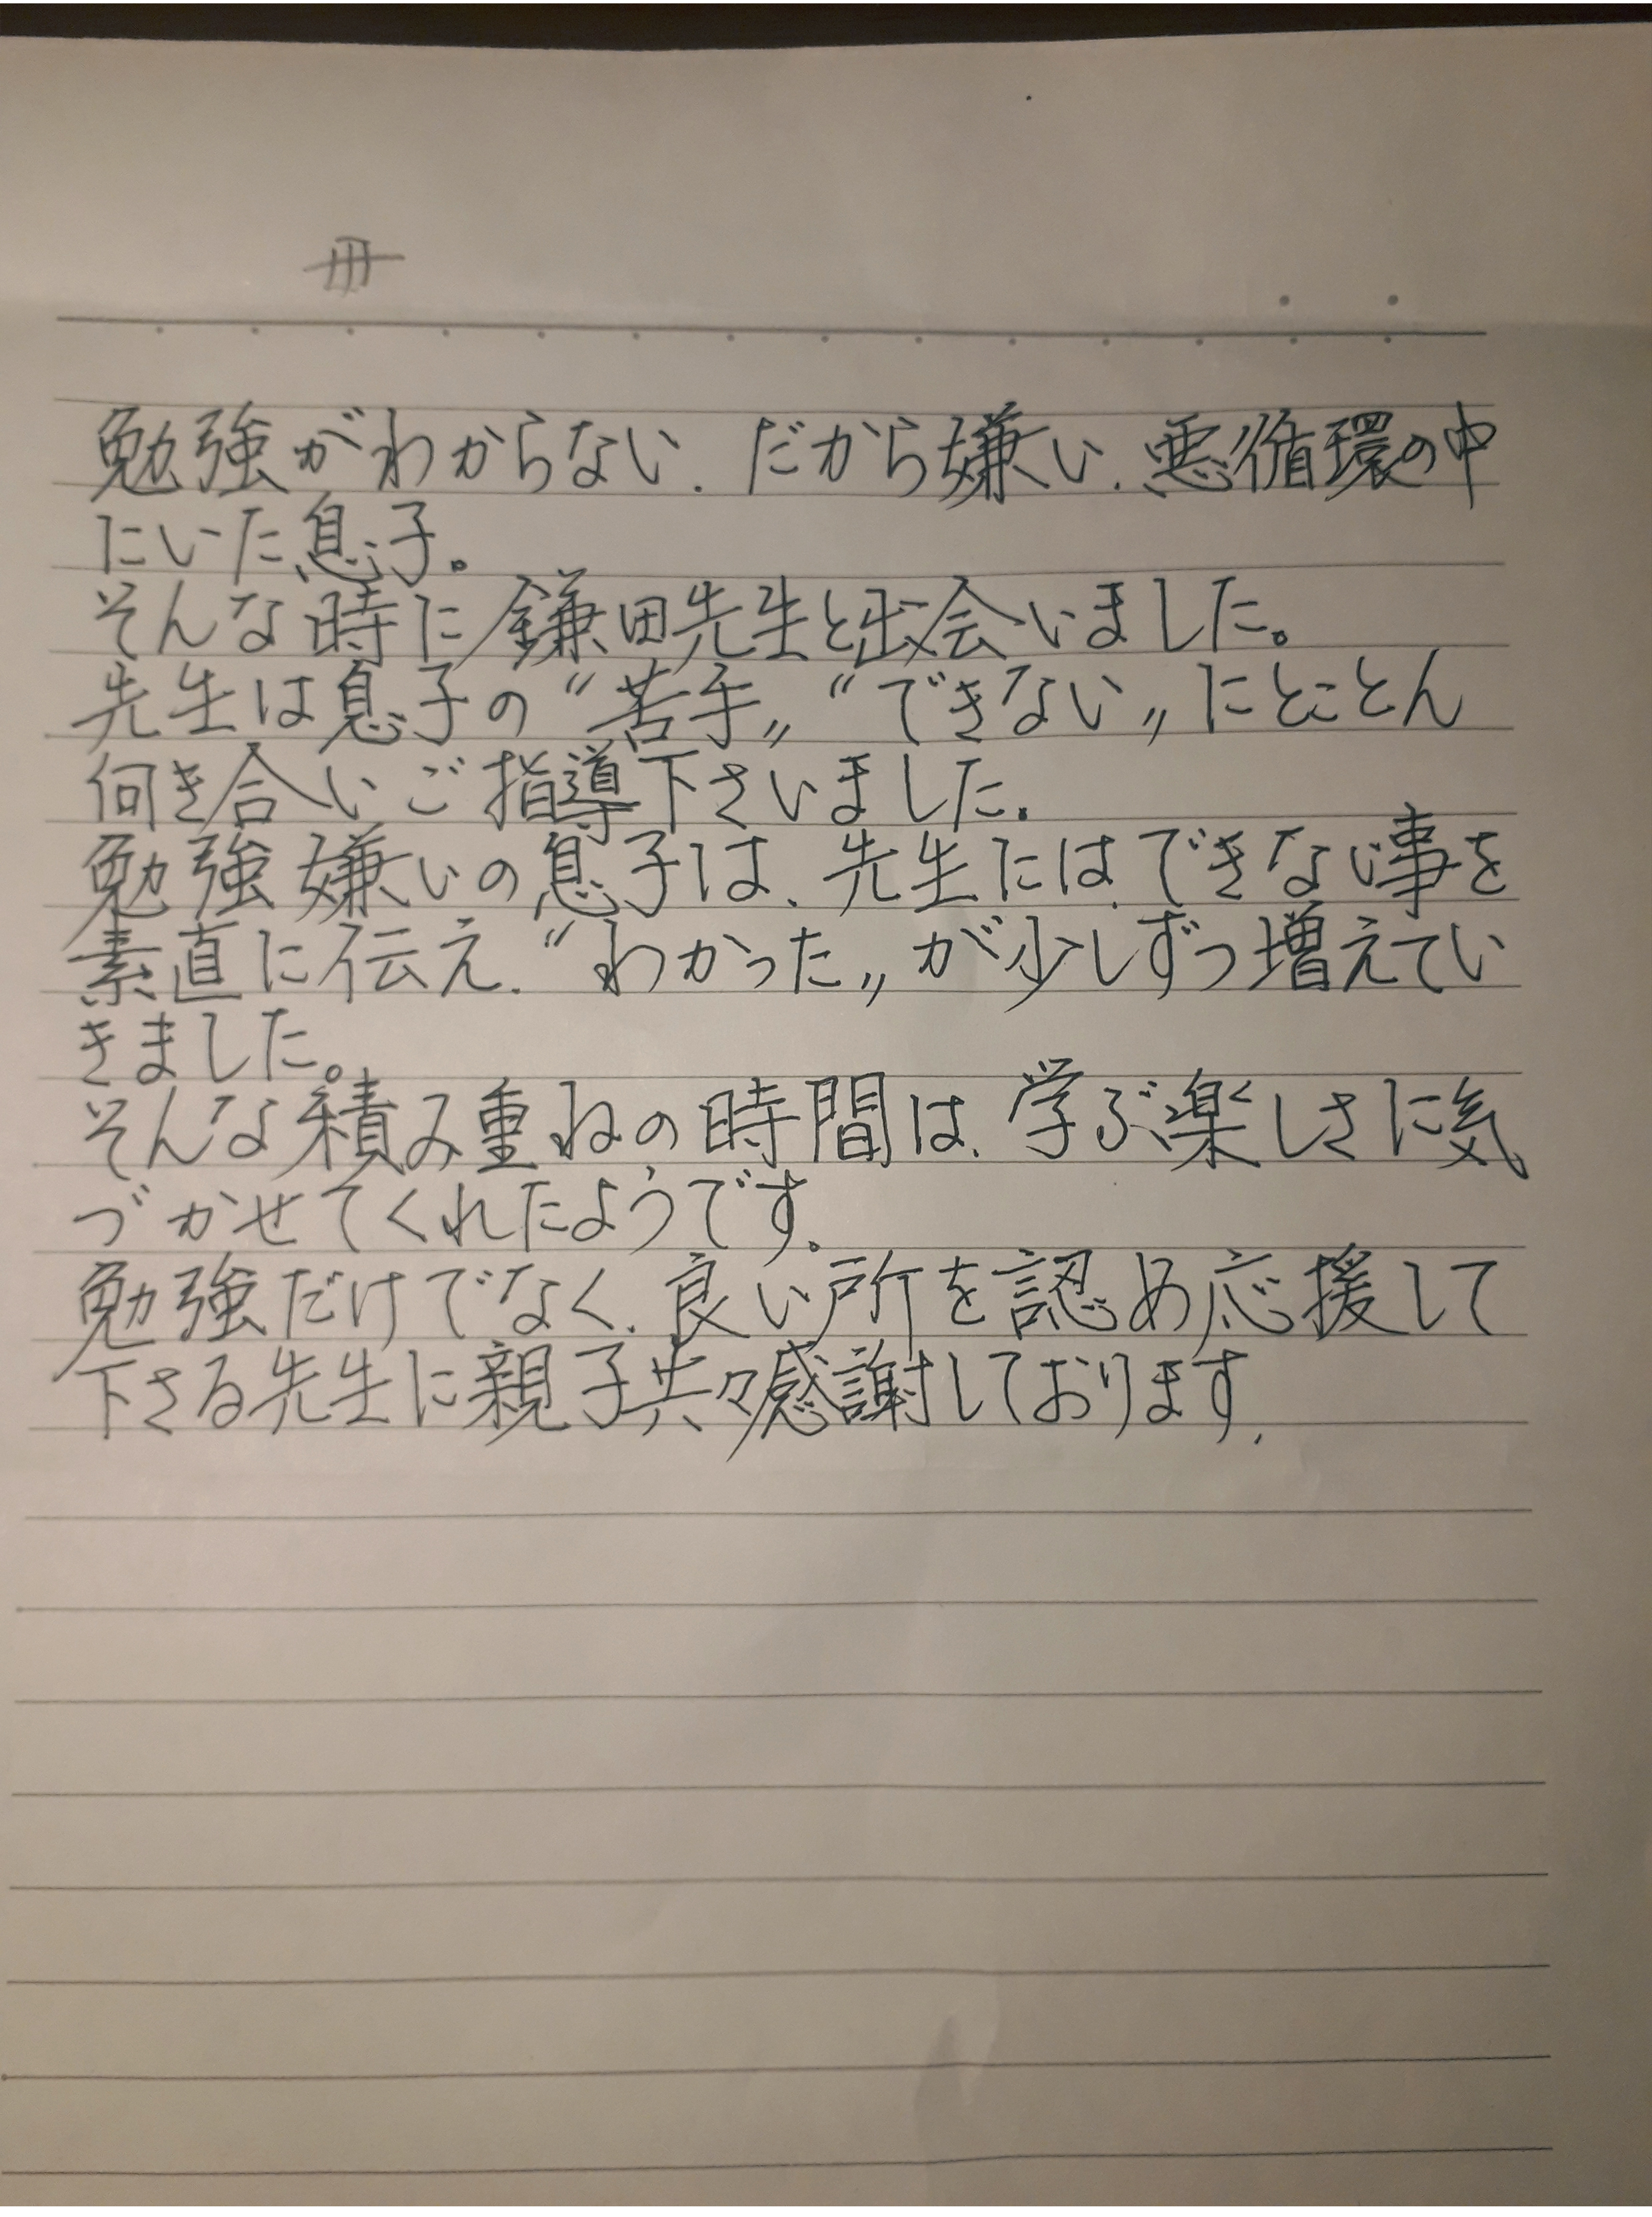 冊
勉強がわからない、だから嫌い、悪循環の中
にいた息子。
そんな時に鎌田先生と出会いました。
先生は息子の〝苦手〟〝できない〟にとことん
向き合いご指導下さいました。
勉強嫌いの息子は、先生には、できない事を
素直に伝え、〝わかった〟が少しずつ増えてい
きました。
そんな積み重ねの時間は、学ぶ楽しさに気
づかせてくれたようです。
勉強だけでなく、良い所を認め応援して
下さる先生に親子共々感謝しております。